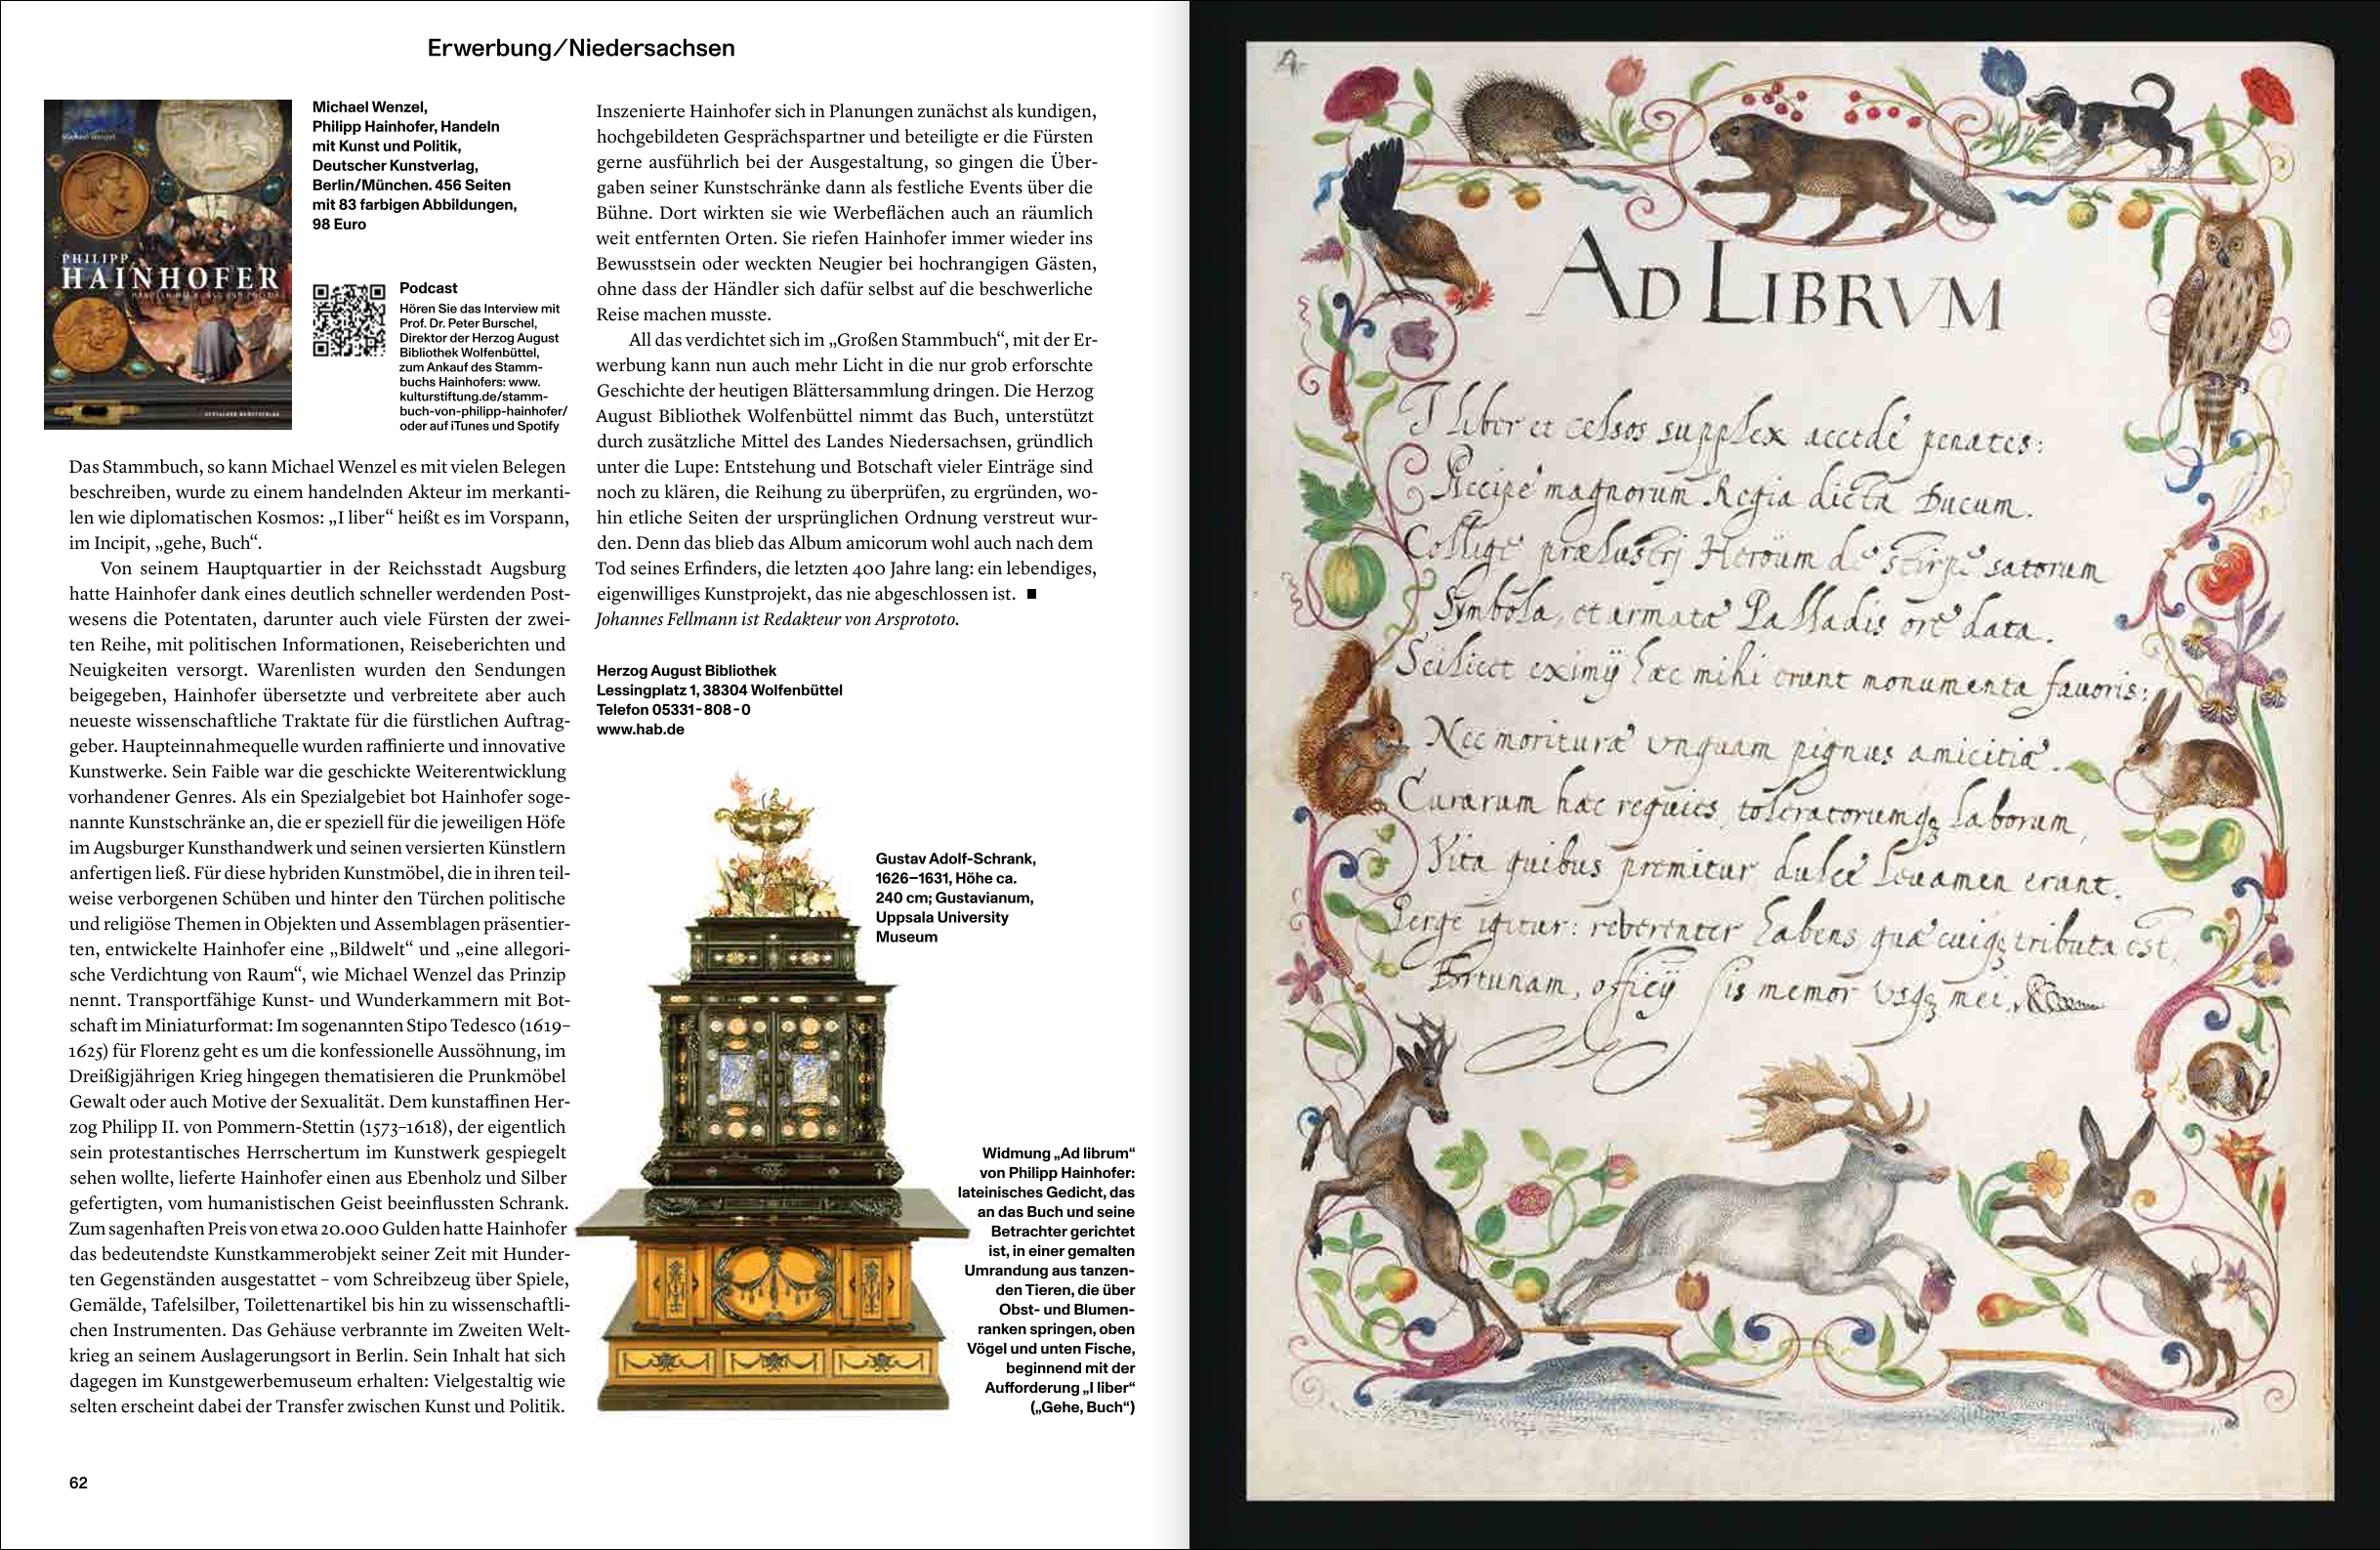 Erwerbung/Niedersachsen
Michael Wenzel
PHILIPP
HAINHOFER
HANDELN MIT KUNST UND POLITIK
DEUTSCHER KUNSTVERLAG
Michael Wenzel,
Philipp Hainhofer, Handeln
mit Kunst und Politik,
Deutscher Kunstverlag,
Berlin/München. 456 Seiten
mit 83 farbigen Abbildungen,
98 Euro
Podcast
Hören Sie das Interview mit
Prof. Dr. Peter Burschel,
Direktor der Herzog August
Bibliothek Wolfenbüttel,
zum Ankauf des Stamm-
buchs Hainhofers: www.
kulturstiftung.de/stamm-
buch-von-philipp-hainhofer/
oder auf iTunes und Spotify
Das Stammbuch, so kann Michael Wenzel es mit vielen Belegen
beschreiben, wurde zu einem handelnden Akteur im merkanti-
len wie diplomatischen Kosmos: „I liber“ heißt es im Vorspann,
im Incipit, „gehe, Buch“.
Von seinem Hauptquartier in der Reichsstadt Augsburg
hatte Hainhofer dank eines deutlich schneller werdenden Post-
wesens die Potentaten, darunter auch viele Fürsten der zwei-
ten Reihe, mit politischen Informationen, Reiseberichten und
Neuigkeiten versorgt. Warenlisten wurden den Sendungen
beigegeben, Hainhofer übersetzte und verbreitete aber auch
neueste wissenschaftliche Traktate für die fürstlichen Auftrag-
geber. Haupteinnahmequelle wurden raffinierte und innovative
Kunstwerke. Sein Faible war die geschickte Weiterentwicklung
vorhandener Genres. Als ein Spezialgebiet bot Hainhofer soge-
nannte Kunstschränke an, die er speziell für die jeweiligen Höfe
im Augsburger Kunsthandwerk und seinen versierten Künstlern
anfertigen ließ. Für diese hybriden Kunstmöbel, die in ihren teil-
weise verborgenen Schüben und hinter den Türchen politische
und religiöse Themen in Objekten und Assemblagen präsentier-
ten, entwickelte Hainhofer eine „Bildwelt“ und „eine allegori-
sche Verdichtung von Raum“, wie Michael Wenzel das Prinzip
nennt. Transportfähige Kunst- und Wunderkammern mit Bot-
schaft im Miniaturformat: Im sogenannten Stipo Tedesco (1619–
1625) für Florenz geht es um die konfessionelle Aussöhnung, im
Dreißigjährigen Krieg hingegen thematisieren die Prunkmöbel
Gewalt oder auch Motive der Sexualität. Dem kunstaffinen Her-
zog Philipp II. von Pommern-Stettin (1573–1618), der eigentlich
sein protestantisches Herrschertum im Kunstwerk gespiegelt
sehen wollte, lieferte Hainhofer einen aus Ebenholz und Silber
gefertigten, vom humanistischen Geist beeinflussten Schrank.
Zum sagenhaften Preis von etwa 20.000 Gulden hatte Hainhofer
das bedeutendste Kunstkammerobjekt seiner Zeit mit Hunder-
ten Gegenständen ausgestattet – vom Schreibzeug über Spiele,
Gemälde, Tafelsilber, Toilettenartikel bis hin zu wissenschaftli-
chen Instrumenten. Das Gehäuse verbrannte im Zweiten Welt-
krieg an seinem Auslagerungsort in Berlin. Sein Inhalt hat sich
dagegen im Kunstgewerbemuseum erhalten: Vielgestaltig wie
selten erscheint dabei der Transfer zwischen Kunst und Politik.
Inszenierte Hainhofer sich in Planungen zunächst als kundigen,
hochgebildeten Gesprächspartner und beteiligte er die Fürsten
gerne ausführlich bei der Ausgestaltung, so gingen die Über-
gaben seiner Kunstschränke dann als festliche Events über die
Bühne. Dort wirkten sie wie Werbeflächen auch an räumlich
weit entfernten Orten. Sie riefen Hainhofer immer wieder ins
Bewusstsein oder weckten Neugier bei hochrangigen Gästen,
ohne dass der Händler sich dafür selbst auf die beschwerliche
Reise machen musste.
All das verdichtet sich im „Großen Stammbuch“, mit der Er-
werbung kann nun auch mehr Licht in die nur grob erforschte
Geschichte der heutigen Blättersammlung dringen. Die Herzog
August Bibliothek Wolfenbüttel nimmt das Buch, unterstützt
durch zusätzliche Mittel des Landes Niedersachsen, gründlich
unter die Lupe: Entstehung und Botschaft vieler Einträge sind
noch zu klären, die Reihung zu überprüfen, zu ergründen, wo-
hin etliche Seiten der ursprünglichen Ordnung verstreut wur-
den. Denn das blieb das Album amicorum wohl auch nach dem
Tod seines Erfinders, die letzten 400 Jahre lang: ein lebendiges,
eigenwilliges Kunstprojekt, das nie abgeschlossen ist. ■
Johannes Fellmann ist Redakteur von Arsprototo.
Herzog August Bibliothek
Lessingplatz 1, 38304 Wolfenbüttel
Telefon 05331-808-0
www.hab.de
Gustav Adolf-Schrank,
1626–1631, Höhe ca.
240 cm; Gustavianum,
Uppsala University
Museum
Widmung „Ad librum“
von Philipp Hainhofer:
lateinisches Gedicht, das
an das Buch und seine
Betrachter gerichtet
ist, in einer gemalten
Umrandung aus tanzen-
den Tieren, die über
Obst- und Blumen-
ranken springen, oben
Vögel und unten Fische,
beginnend mit der
Aufforderung „I liber“
(„Gehe, Buch“)
62
AD LIBRVM
I liber et celsos supplex accede penates:
Accipe magnorum Regia dicta Ducum.
Collige prælustrj Heroum de stirpe satorum
Symbola, et armatâ Palladis ore data.
Scilicet eximÿ hæc mihi erunt monumenta fauoris:
Nec morituræ vnquam pignus amicitiæ.
Curarum hæc requies, toleratorumq; laborum,
Vita quibus premitur dulce leuamen erunt.
Perge igitur: reverenter habens quæ cuiq; tributa est
Fortunam, officÿ sis memor vsq; mei.